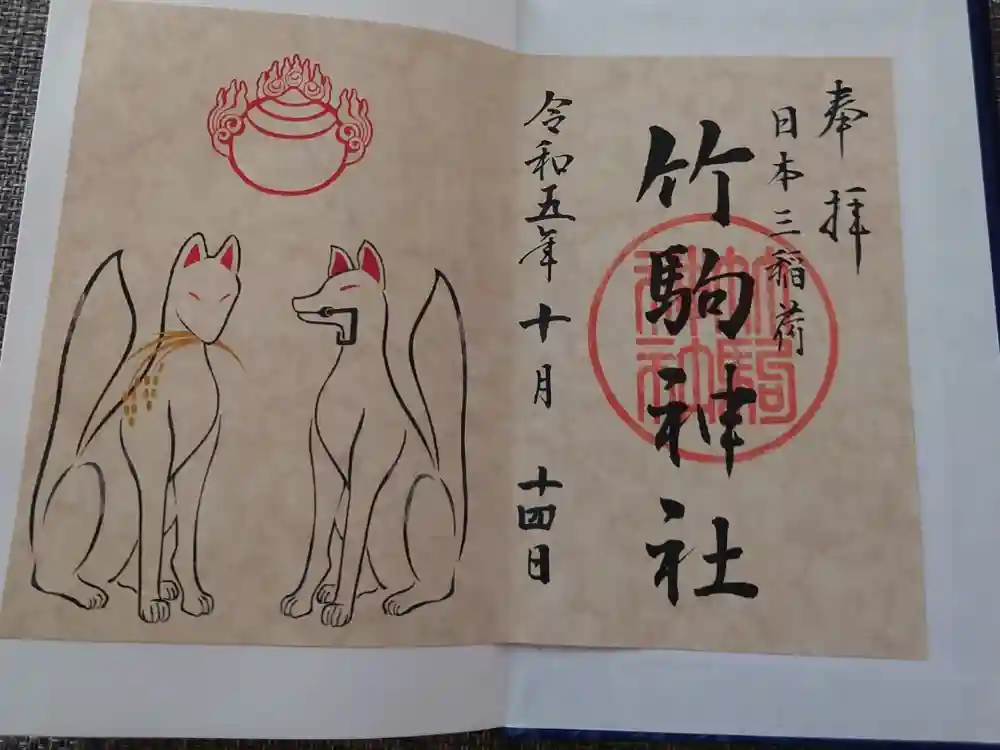 奉拝
日本三稲荷
竹駒神社
竹駒神社
令和五年十月十四日